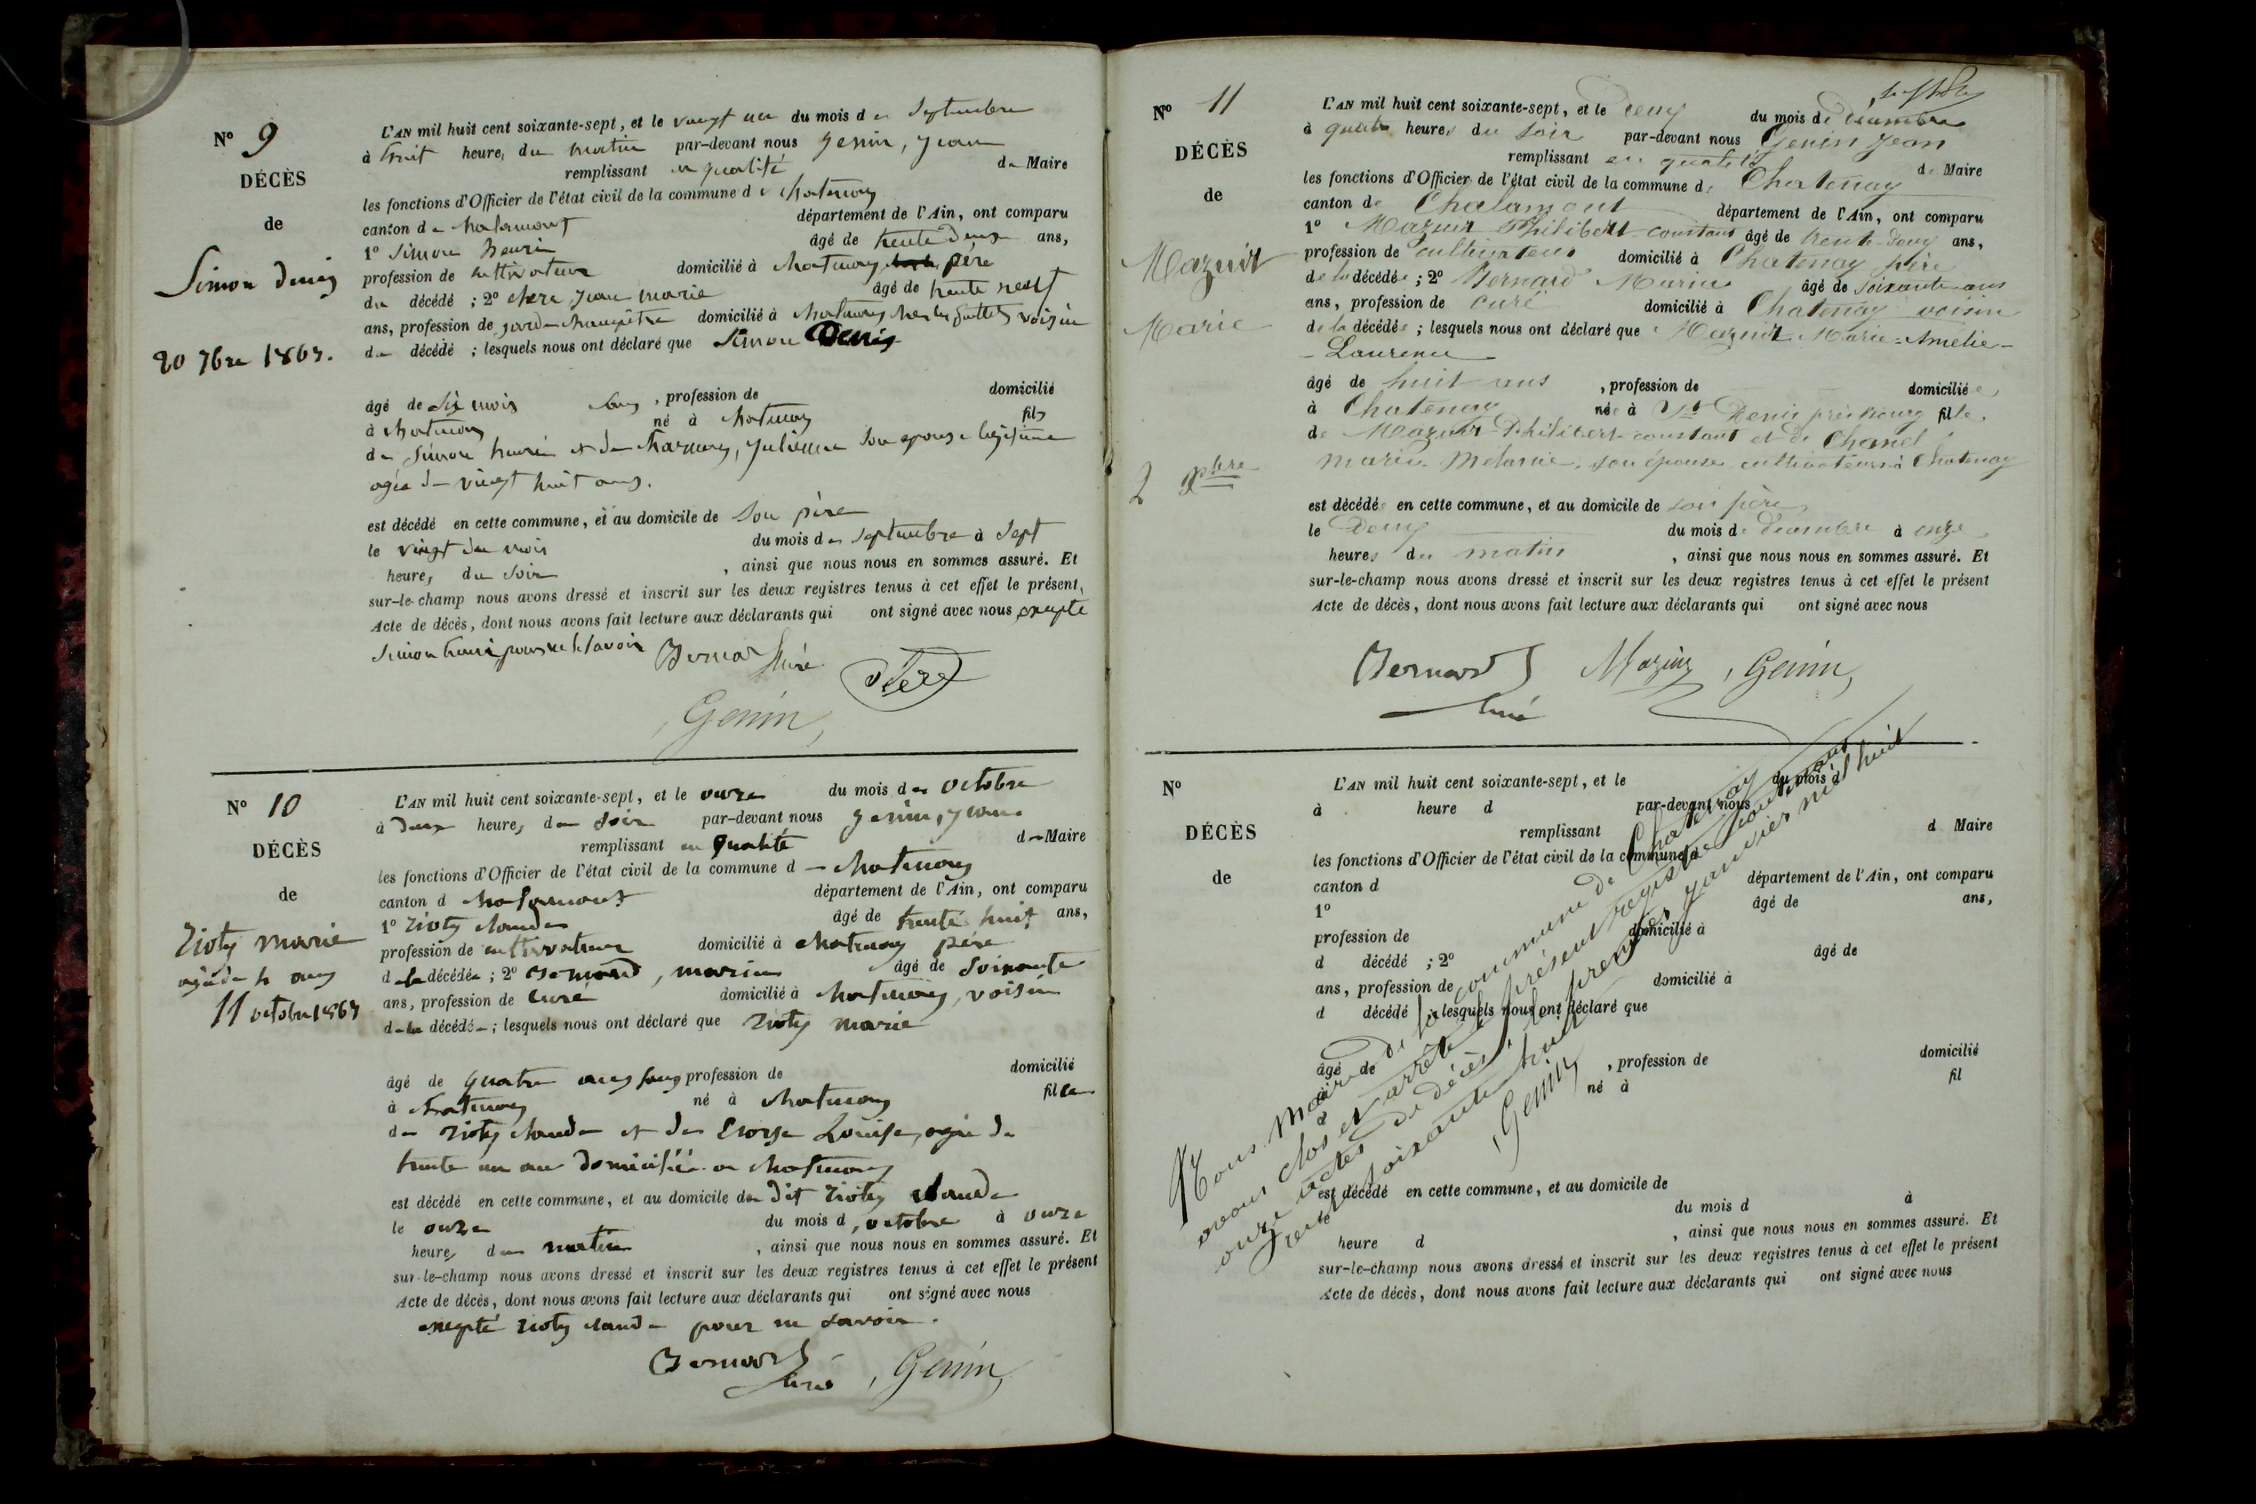 Nº 9
DÉCÈS
de
Simon Denis
20 7bre 1867.
L'AN mil huit cent soixante-sept, et le vingt un du mois de Septembre
à huit heures du matin par-devant nous Genin, Jean
remplissant en qualité de Maire
les fonctions d'Officier de l'état civil de la commune de Chatenay
canton de Chalamont département de l'Ain, ont comparu
1º Simon henri âgé de trente deux ans,
profession de cultivateur domicilié à Chatenay père
du décédé ; 2º Jean marie âgé de trente neuf
ans, profession de garde champêtre domicilié à Chatenay voisin
du décédé ; lesquels nous ont déclaré que Simon Denis
âgé de Six mois sans , profession de domicilié
à Chatenay né à Chatenay fils
de Simon henri et de Julienne son epouse légitime
agée de vingt huit ans.
est décédé en cette commune, et au domicile de son père
le vingt du mois du mois de Septembre à Sept
heures du soir , ainsi que nous nous en sommes assuré. Et
sur-le-champ nous avons dressé et inscrit sur les deux registres tenus à cet effet le présent,
Acte de décès, dont nous avons fait lecture aux déclarants qui ont signé avec nous excepté
Simon henri pour ne le savoir Bernard Curé
Genin
Nº 10
DÉCÈS
de
Rioty marie
agée de 4 ans
11 octobre 1867
L'AN mil huit cent soixante-sept, et le onze du mois de octobre
à deux heures du soir par-devant nous Genin, Jean
remplissant en qualité de Maire
les fonctions d'Officier de l'état civil de la commune de Chatenay
canton d Chalamont département de l'Ain, ont comparu
1º Rioty claude âgé de trente huit ans,
profession de cultivateur domicilié à Chatenay père
de la décédée ; 2º Bernard, marin âgé de Soixante
ans, profession de curé domicilié à Chatenay, voisin
de la décédée ; lesquels nous ont déclaré que Rioty marie
âgé de quatre ans sans profession de domicilié
à Chatenay né à Chatenay fille
de Rioty claude et de Louise, agée de
trente un an domiciliée a Chatenay
est décédé en cette commune, et au domicile du dit Rioty claude
le onze du mois d octobre à onze
heures du matin , ainsi que nous nous en sommes assuré. Et
sur-le-champ nous avons dressé et inscrit sur les deux registres tenus à cet effet le présent
Acte de décès, dont nous avons fait lecture aux déclarants qui ont signé avec nous
excepté Rioty claude pour ne savoir.
Bernard Curé , Genin,
Nº 11
DÉCÈS
de
Mazuir
Marie
2 Xbre
L'AN mil huit cent soixante-sept, et le Deux du mois de Décembre
à quatre heures du soir par-devant nous Genin Jean
remplissant en qualité de Maire
les fonctions d'Officier de l'état civil de la commune de Chatenay
canton de Chalamont département de l'Ain, ont comparu
1º Mazuir Philibert constant âgé de trente-deux ans,
profession de cultivateur domicilié à Chatenay père
de la décédée ; 2º Bernard Marin âgé de soixante ans
ans, profession de curé domicilié à Chatenay voisin
de la décédée ; lesquels nous ont déclaré que Mazuir Marie-Amélie-
-Laurence
âgé de huit ans , profession de domiciliée
à Chatenay née à St Denis fille
de Mazuir Philibert constant et de Chanel
Marie Mélanie, son épouse cultivateurs à Chatenay
est décédée en cette commune, et au domicile de son père
le Deux du mois de Décembre à onze
heures du matin , ainsi que nous nous en sommes assuré. Et
sur-le-champ nous avons dressé et inscrit sur les deux registres tenus à cet effet le présent
Acte de décès, dont nous avons fait lecture aux déclarants qui ont signé avec nous
Bernard Curé Mazuir , Genin,
Nº
DÉCÈS
de
L'AN mil huit cent soixante-sept, et le du mois d
à heure d par-devant nous
remplissant d Maire
les fonctions d'Officier de l'état civil de la commune d
canton d département de l'Ain, ont comparu
1º âgé de ans,
profession de domicilié à
d décédé ; 2º âgé de
ans, profession de domicilié à
d décédé ; lesquels nous ont déclaré que
âgé de , profession de domicilié
à né à fil
d
est décédé en cette commune, et au domicile de
le du mois d à
heure d , ainsi que nous nous en sommes assuré. Et
sur-le-champ nous avons dressé et inscrit sur les deux registres tenus à cet effet le présent
Acte de décès, dont nous avons fait lecture aux déclarants qui ont signé avec nous
Nous Maire de la commune de Chatenay
avons clos et arrêté le présent registre contenant
onze actes de décès, le premier janvier mil huit
cent soixante huit
, Genin,